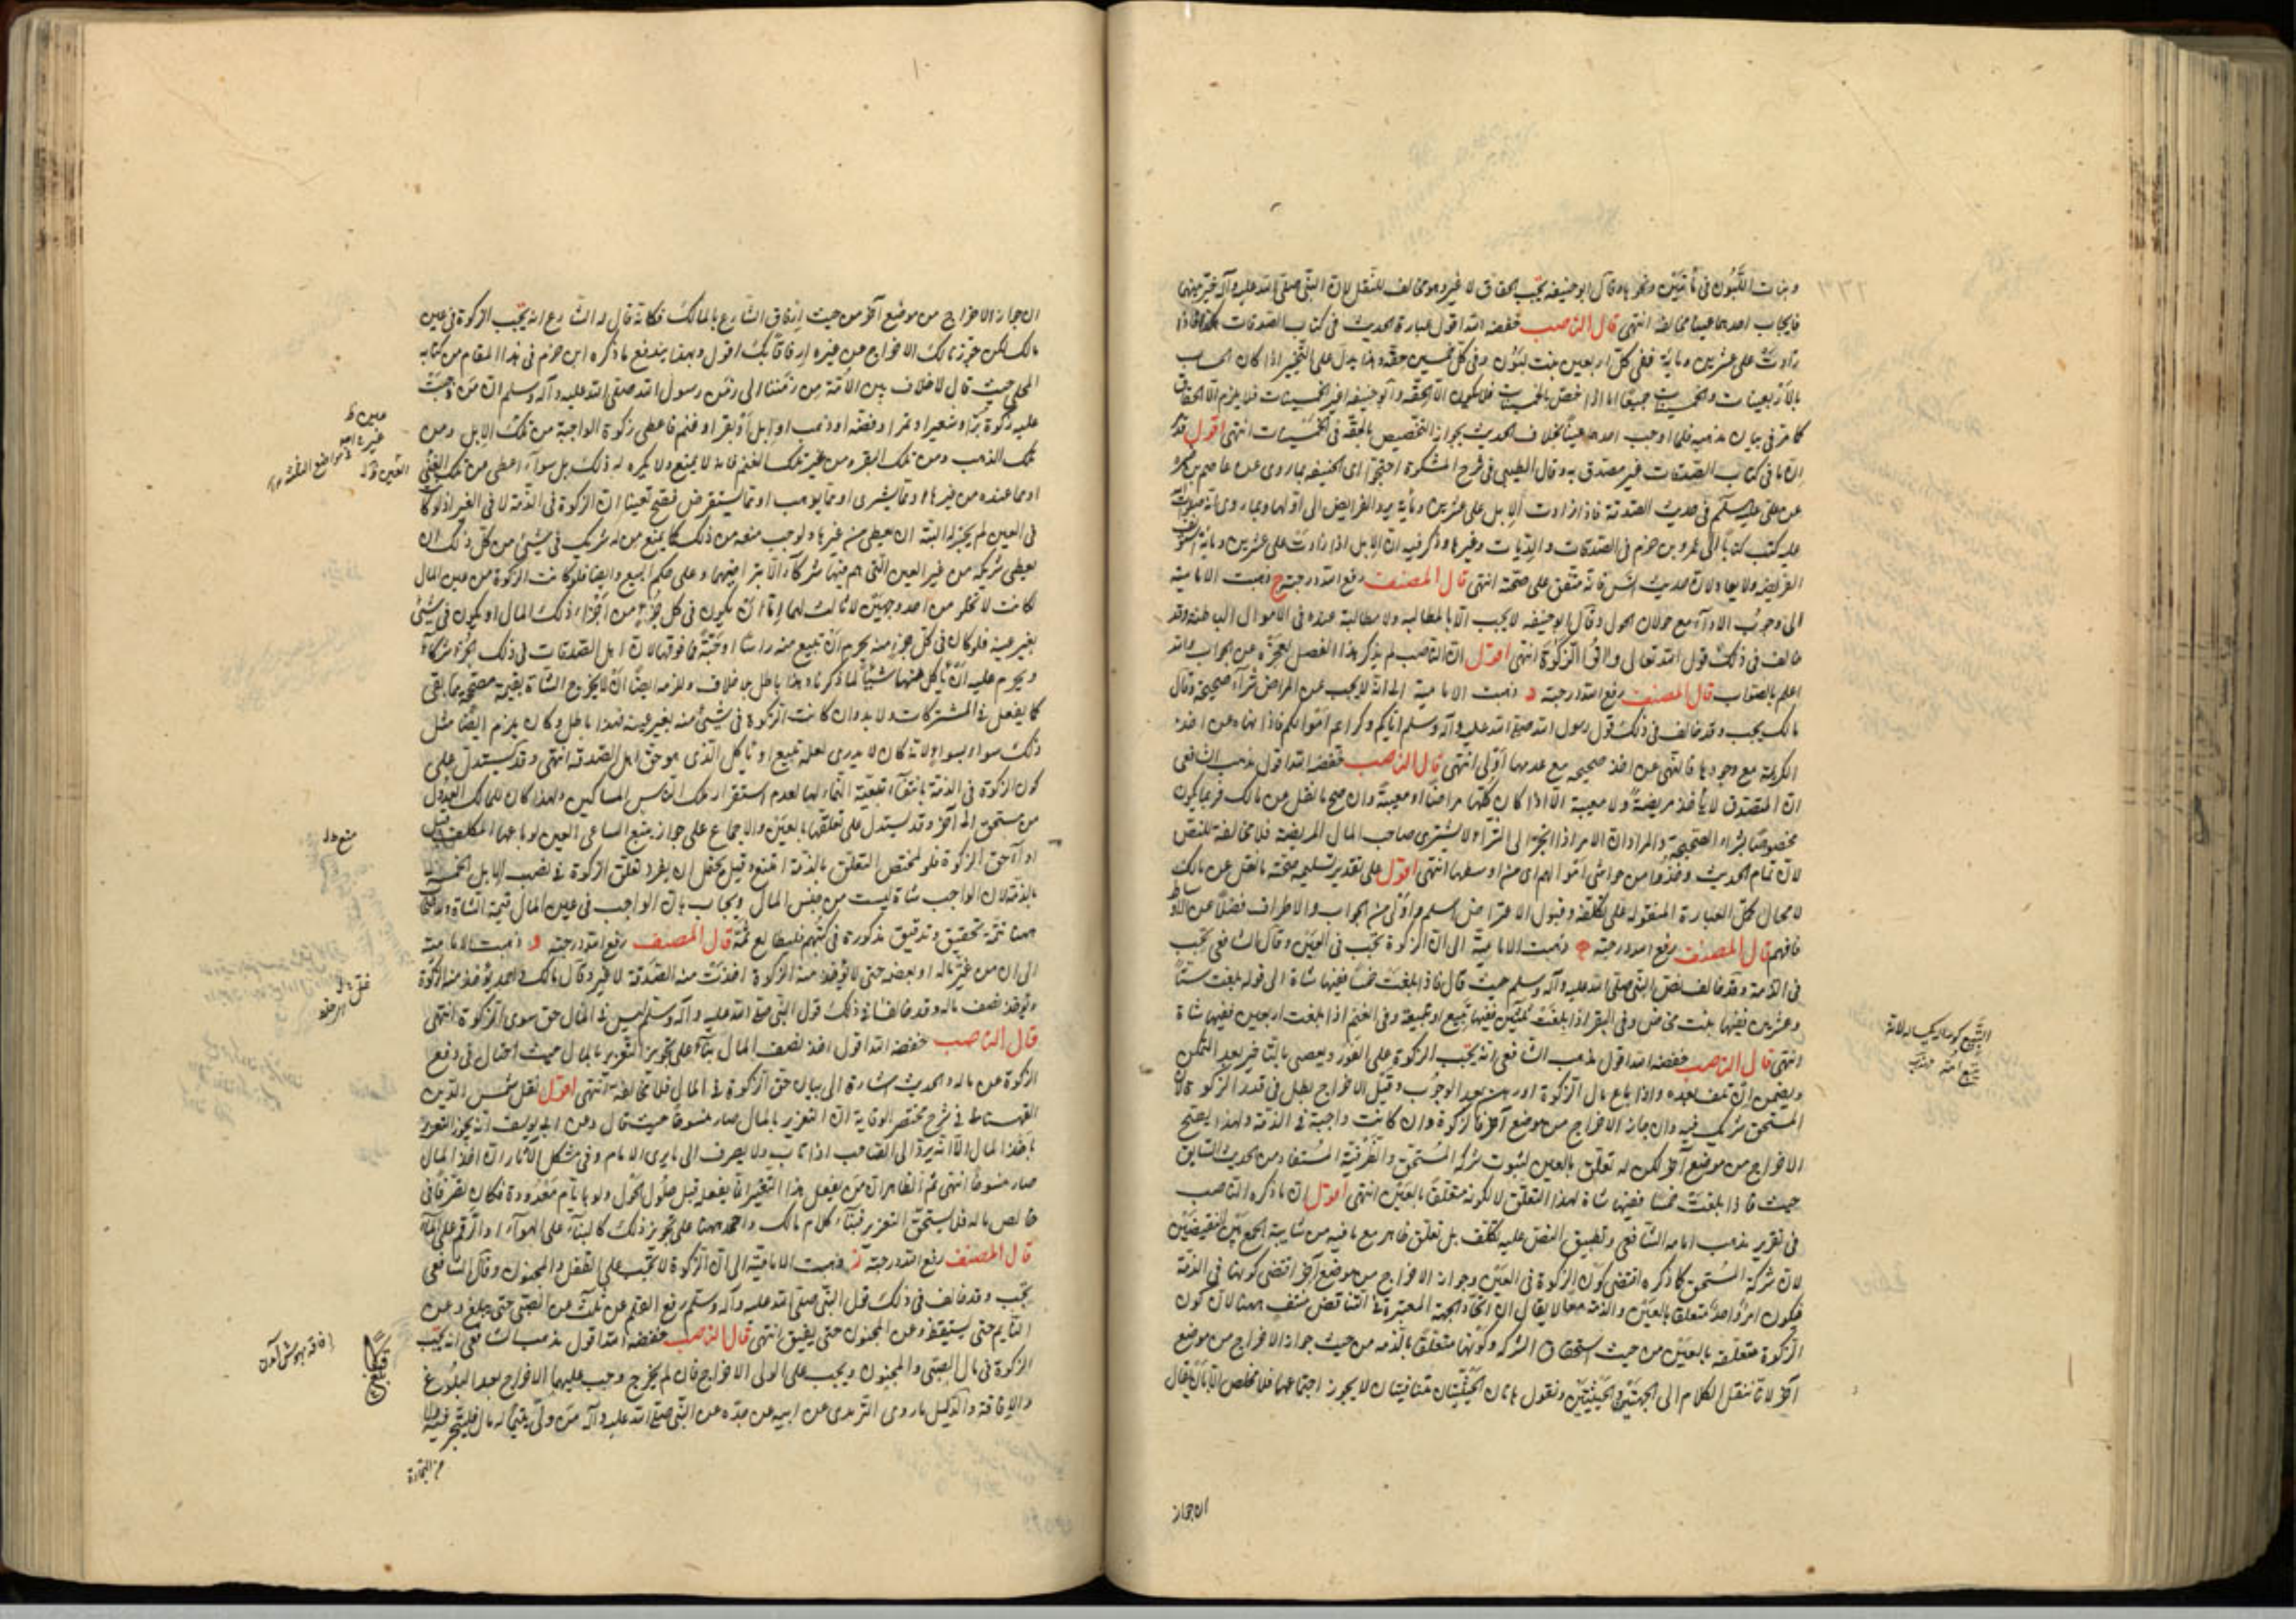 وبنات اللبون في تأتين ونحوها وقال ابو حنيفه يجب الحقاق لا غير وهو مخالف للنقل لان النبي صلى الله عليه وآله خير بينهما
فايجاب احدهما عينا مخالفة انتهى قال الناصب خفضه الله اقول عبارة الحديث في كتاب الصدقات هكذا فاذا
زادت على عشرين ومائة ففي كل اربعين بنت لبون وفي كل خمسين حقه وهذا يدل على التخيير اذا كان الحساب
بالاربعينات والخمسينات جميعا اما اذا خص بالخمسينات فلا يكون الا الحقه وابو حنيفه اعتبر الخمسينات فلا يلزم الا الحقاق
كما مر في بيان مذهبه فلما اوجب احدهما عينا بخلاف الحديث بجواز التخصيص بالحقه في الخمسينات انتهى اقول قد
ان ما في كتاب الصدقات غير مصدق به وقال الطيبي في شرح المشكوة احتجوا اى الحنيفه بما روى عن عاصم بن ضمره
عن علي عليه السلام في حديث الصدقة فاذا زادت الابل على عشرين ومأية يرد الفرايض الى اولها وبما روى انه صلوات الله
عليه كتب كتابا الى عمرو بن حزم في الصدقات والديات وغيرها وذكر فيه ان الابل اذا زادت على عشرين ومائة استؤنفت
الفرايض ولا يعادلان حديث انس فانه متفق على صحته انتهى قال المصنف رفع الله درجته ج ذهبت الامامية
الى وجوب الاداء مع حولان الحول وقال ابو حنيفه لا يجب الا بالمطالبه ولا مطالبة عنده في الاموال الباطنة وقد
خالف في ذلك قول الله تعالى وآتوا الزكوة انتهى اقول ان الناصب لم يذكر هذا الفصل لعجزه عن الجواب والله
اعلم بالصواب قال المصنف رفع الله درجته د ذهبت الامامية الى انه لا يجب عن المراض شراء صحيحة وقال
مالك يجب وقد خالف في ذلك قول رسول الله صلى الله عليه وآله وسلم اياكم وكرائم اموالهم فاذا نهاه عن اخذ
الكريمة مع وجودها فالنهى عن اخذ صحيحه مع عدمها اولى انتهى قال الناصب خفضه الله اقول مذهب الشافعى
ان المتصدق لا يأخذ مريضة ولا معيبة الا اذا كان كلها مراضا او معيبة وان صح ما نقل عن مالك فربما يكون
مخصوصا بشراء الصحيحة والمراد ان الامر اذا انجر الى الشراء لا يشترى صاحب المال المريضة فلا مخالفة للنص
لان تمام الحديث وخذوا من حواشى اموالهم اى من اوسطها انتهى اقول على تقدير تسليم صحته ما نقل عن مالك
لا مجال لحمل العبارة المنقوله على تكلفه وقبول الاعتراض اسلم واولى من الجواب والاطراف فضلا عن الاوساط
فافهم قال المصنف رفع الله درجته ه ذهبت الامامية الى ان الزكوة تجب في العين وقال الشافعى تجب
في الذمة وقد خالف نص النبي صلى الله عليه وآله وسلم حيث قال فاذا بلغت خمسا ففيها شاة الى قوله بلغت ستا
وعشرين ففيها بنت مخاض وفي البقر اذا بلغت ثلثين ففيها تبيع او تبيعة وفي الغنم اذا بلغت اربعين ففيها شاة
انتهى قال الناصب خفضه الله اقول مذهب الشافعى انه تجب الزكوة على الفور ويعصى بالتأخير بعد التمكن
ويضمن ان تلف بعده واذا باع مال الزكوة او رهن بعد الوجوب وقبل الاخراج بطل في قدر الزكوة لان
المستحق شريك فيه وان جاز الاخراج من موضع آخر فالزكوة وان كانت واجبة في الذمة ولهذا يصح
الاخراج من موضع آخر لكن له تعلق بالعين لثبوت شركة المستحق والظرفية المستفاد من الحديث السابق
حيث فاذا بلغت خمسا ففيها شاة لهذا التعلق لا لكونه متعلقا بالعين انتهى اقول ان ما ذكره الناصب
في تقرير مذهب امامه الشافعى وتطبيق النص عليه تكلف بل تعلق ظاهر مع ما فيه من شايبة الجمع بين النقيضين
لان شركة المستحق كما ذكره اقتضى كون الزكوة في العين وجواز الاخراج من موضع آخر اقتضى كونها في الذمة
فيكون امرا واحدا متعلقا بالعين والذمة معا لا يقال ان اتحاد الجهة المعتبرة في التناقض منتف ههنا لان كون
الزكوة متعلقه بالعين من حيث استحقاق الشركه وكونها متعلقا بالذمه من حيث جواز الاخراج من موضع
آخر لانا ننقل الكلام الى الجهتين والحيثيتين ونقول هاتان الحيثيتان متنافيتان لا يجوز اجتماعهما فلا مخلص الا بان يقال
ان جواز
ان جواز الاخراج من موضع آخر من حيث ارفاق الشارع بالمالك فكانه قال له الشارع انه تجب الزكوة في عين
مالك لكن جوزنا لك الاخراج عن غيره ارفاقا بك اقول وبهذا يندفع ما ذكره ابن حزم في هذا المقام من كتابه
المحلى حيث قال لا خلاف بين الامة من زمننا الى زمن رسول الله صلى الله عليه وآله وسلم ان من وجبت
عليه زكوة برا وشعيرا وتمرا وفضه او ذهب او ابل او بقرا وغنم فاعطى زكوة الواجبة من تلك الابل ومن
تلك الذهب ومن تلك البقر ومن غير تلك الغنم فانه لا يمنع ولا يكره له ذلك بل سواء اعطى من تلك العين
او مما عنده من غيرها او مما يشترى او مما يوهب او مما يستقرض فصح يقينا ان الزكوة في الذمة لا في العين اذ لو كا
في العين لم يجز له البتة ان يعطى من غيرها ولوجب منعه من ذلك كما يمنع من له شريك في شيء من كل ذلك ان
يعطى شريكه من غير العين التى هم فيها شركاء الا بتراضيهما وعلى حكم البيع وايضا فلو كانت الزكوة من عين المال
لكانت لا تخلو من احد وجهين لا ثالث لهما اما ان يكون في كل جزء من اجزاء ذلك المال او يكون في شيء
بغير عينه فلو كان في كل جزء منه يحرم ان تبيع منه راسا او حبة فما فوقها لان اهل الصدقات في ذلك الجزء شركاء
ويحرم عليه ان يأكل منها شيئا لما ذكرنا وهذا باطل بلا خلاف وللزمه ايضا ان لا يخرج الشاة الا بقيمة مصححة مما بقى
كما يفعل في المشتركات ولا بد وان كانت الزكوة في شيء منه بغير عينه فهذا باطل وكان يلزم ايضا مثل
ذلك سواء بسواء لانه كان لا يدرى لعله يبيع او يأكل الذى هو حق اهل الصدقة انتهى وقد يستدل على
كون الزكوة في الذمة بانتفاء تبعية النماء لها لعدم استقرار ملك الناس المساكين ولهذا كان للمالك العدول
من مستحق الى آخر وقد يستدل على تعلقها بالعين والاجماع على جواز تتبع الساعى العين لو باعها المكلف قبل
اداء حق الزكوة فلو اختص التعلق بالذمة امتنع وقيل يحتمل ان يفرد تعلق الزكوة في نصب الابل الخمسة
بالذمة لان الواجب شاة ليست من جنس المال ويجاب بان الواجب في عين المال قيمة الشاة ولاصحابنا
ههنا تتمة تحقيق وتدقيق مذكورة في كتبهم فليطالع ثمة قال المصنف رفع الله درجته و ذهبت الامامية
الى ان من غير ماله او بعضه حتى لا يؤخذ منه الزكوة اخذت منه الصدقة لا غير وقال مالك واحمد يؤخذ منه الزكوة
ويؤخذ نصف ماله وقد خالفا في ذلك قول النبي صلى الله عليه وآله وسلم ليس في المال حق سوى الزكوة انتهى
قال الناصب خفضه الله اقول اخذ نصف المال بناء على تجويز التعزير بالمال حيث احتال في دفع
الزكوة عن ماله والحديث اشارة الى بيان حق الزكوة في المال فلا مخالفة انتهى اقول نقل شمس الدين
القهستانى في شرح مختصر الوقاية ان التعزير بالمال صار منسوخا حيث قال وعن ابى يوسف انه يجوز التعزير
باخذ المال الا انه يرد الى الصاحب اذا تاب ولا يصرف الى ما يرى الامام وفي مشكل الآثار ان اخذ المال
صار منسوخا انتهى ثم الظاهر ان من يفعل هذا التغيير انما يفعله قبل حلول الحول ولو بايام معدودة فكان تصرفا في
خالص ماله فلا يستحق التعزير فبناء كلام مالك واحمد ههنا على تجويز ذلك كالبناء على الهواء او الرقم على الماء
قال المصنف رفع الله درجته ز ذهبت الامامية الى ان الزكوة لا تجب على الطفل والمجنون وقال الشافعى
يجب وقد خالف في ذلك قول النبي صلى الله عليه وآله وسلم رفع القلم عن ثلث عن الصبى حتى يبلغ وعن
النايم حتى يستيقظ وعن المجنون حتى يفيق انتهى قال الناصب خفضه الله اقول مذهب الشافعى انه تجب
الزكوة في مال الصبى والمجنون ويجب على الولى الاخراج فان لم يخرج وجب عليهما الاخراج بعد البلوغ
والافاقة والدليل ما روى الترمذى عن ابيه عن جده عن النبي صلى الله عليه وآله من ولى يتيما له مال فليتجر فيه ولا